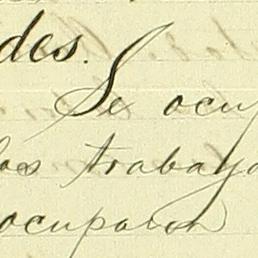 des.
Se ocu
os trabaja
ocuparon